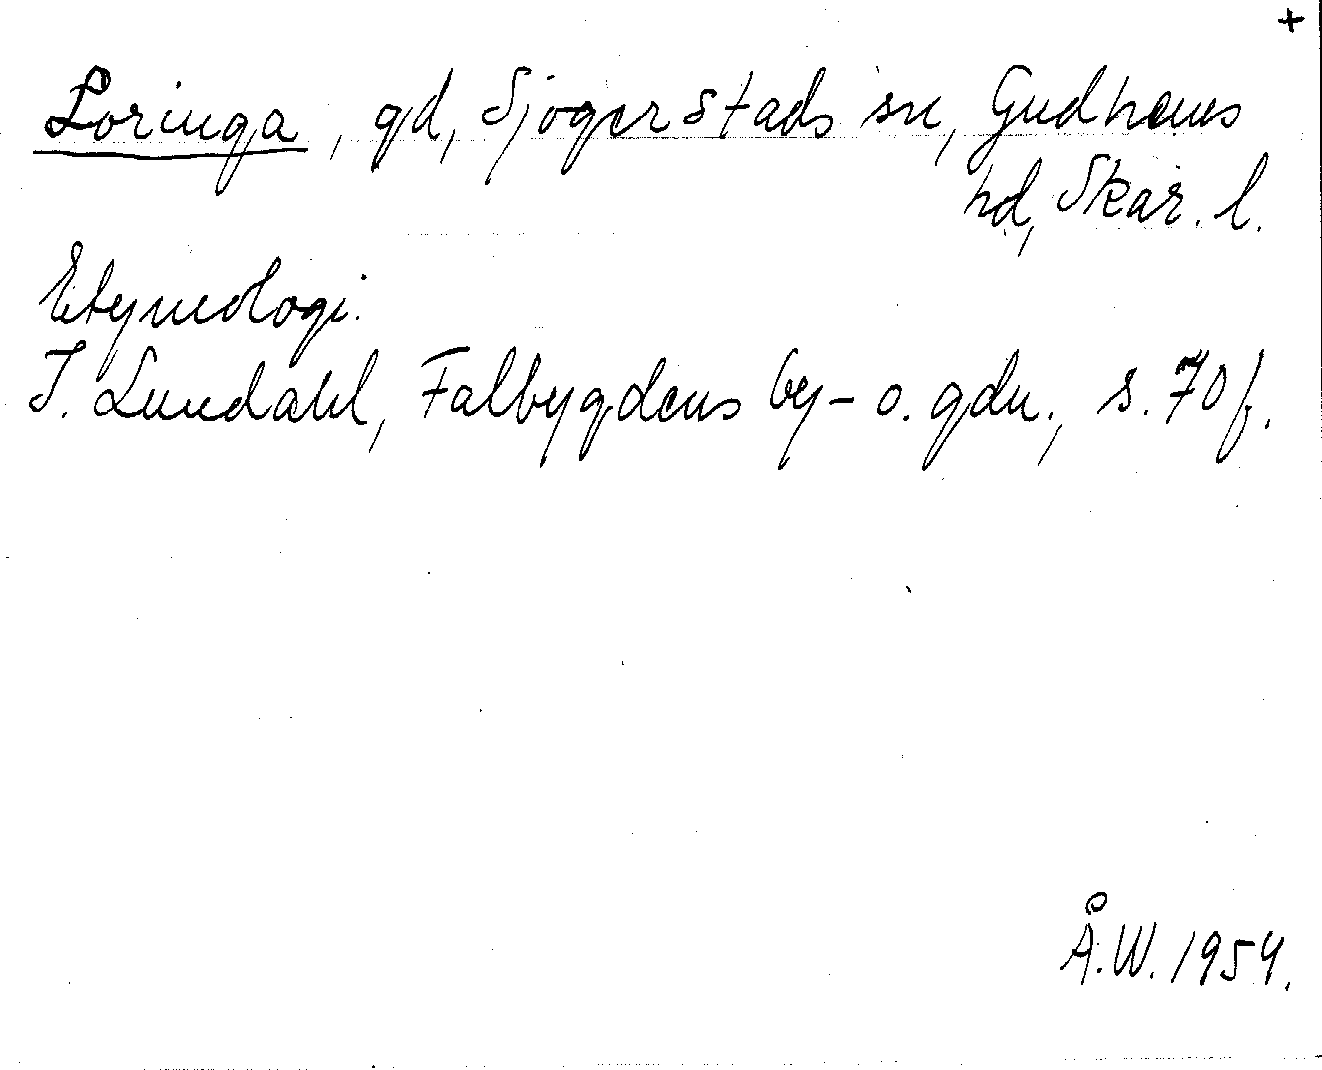 +
Loringa, gd, Sjogerstads sn, Gudhems
hd, Skar. l.
Etymologi.
I. Lundahl, Falbygdens by- o. gdn., s. 70 f.
Å.W. 1954.